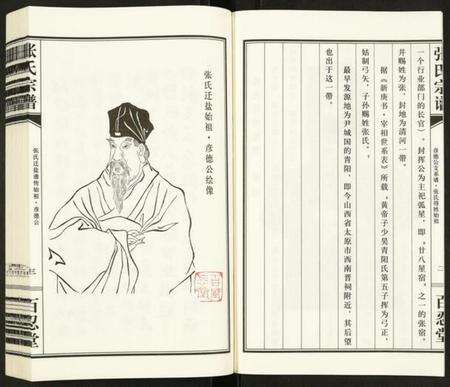 张氏宗谱
彦德公支系谱·张氏得姓始祖
二
百忍堂
一个行业部门的长官），封挥公为主祀弧星，即，廿八星宿，之一的张宿，
并赐姓为张，封地为清河一带。
据《新唐书·宰相世系表》所载，黄帝子少昊青阳氏第五子挥为弓正，
始制弓矢，子孙赐姓张氏。，
最早发源地为尹城国的青阳，即今山西省太原市西南晋祠附近，其后望
也出于这一带。
张氏迁盐始祖·彦德公绘像
张氏宗谱
张氏迁盐谱传始祖·彦德公
三
百忍堂